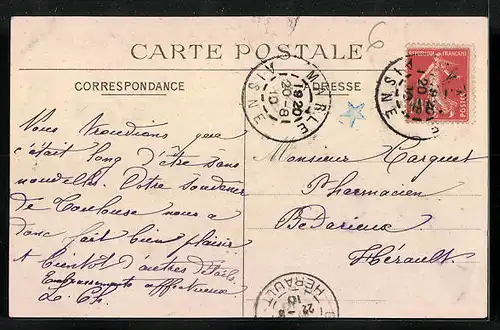 CARTE POSTALE
CORRESPONDANCE
ADRESSE
RÉPUBLIQUE FRANÇAISE
POSTES
MARLE
AISNE
19 20
20-8
10
6
Vous trouvions que
c'était long d'être sans
nouvelles. Votre souvenir
de Toulouse nous a
donc fait bien plaisir
A bientôt d'autres
Embrassements affectueux
Monsieur Carquet
Pharmacien
Bédarieux
Hérault.
HÉRAULT
22-8
10